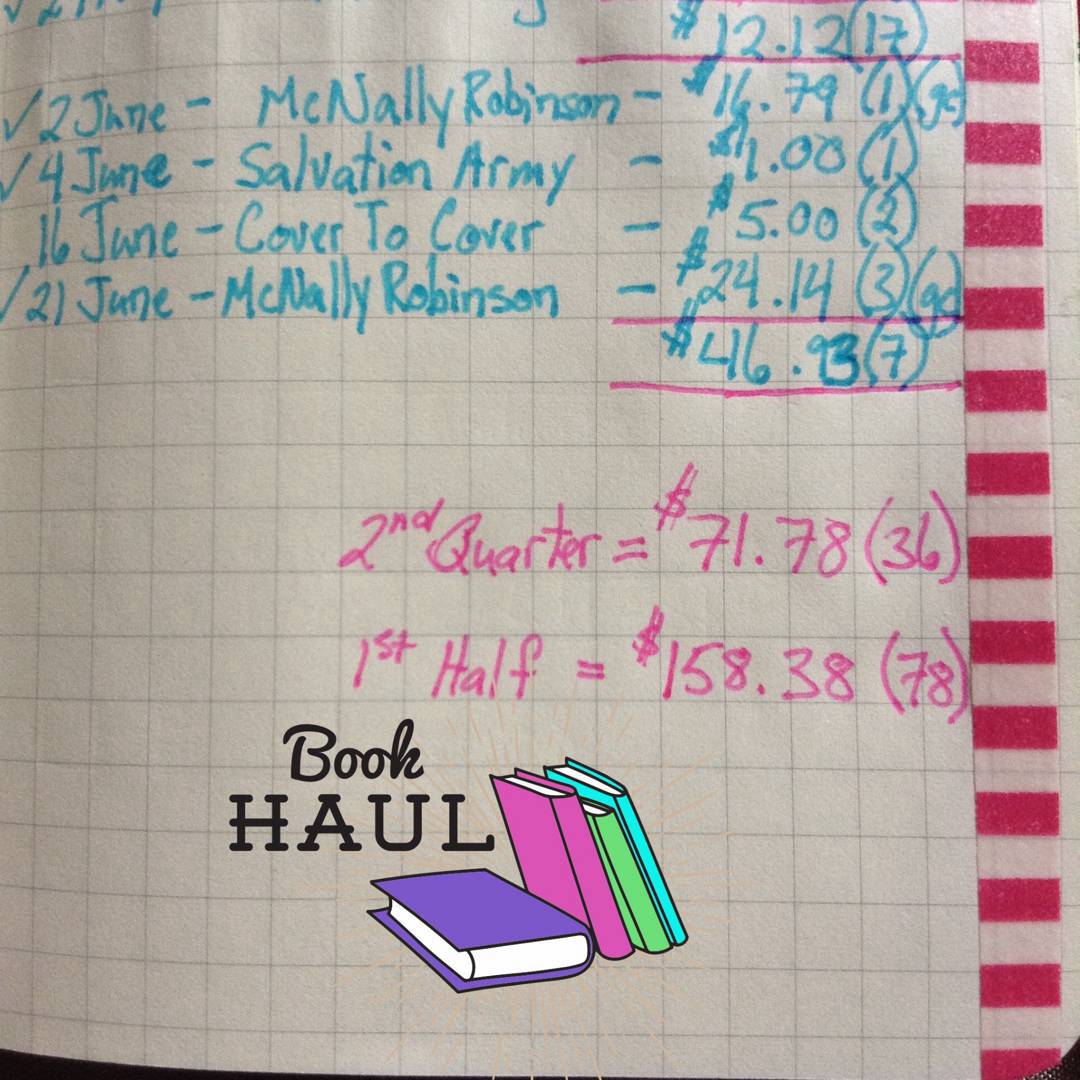 $12.12(17)
✓2 June - McNally Robinson - $16.79 (1)(gc)
✓4 June - Salvation Army - $1.00 (1)
16 June - Cover To Cover - $5.00 (2)
✓21 June - McNally Robinson - $24.14 (3)(gc)
$46.93(7)
2nd Quarter = $71.78 (36)
1st Half = $158.38 (78)
Book
HAUL